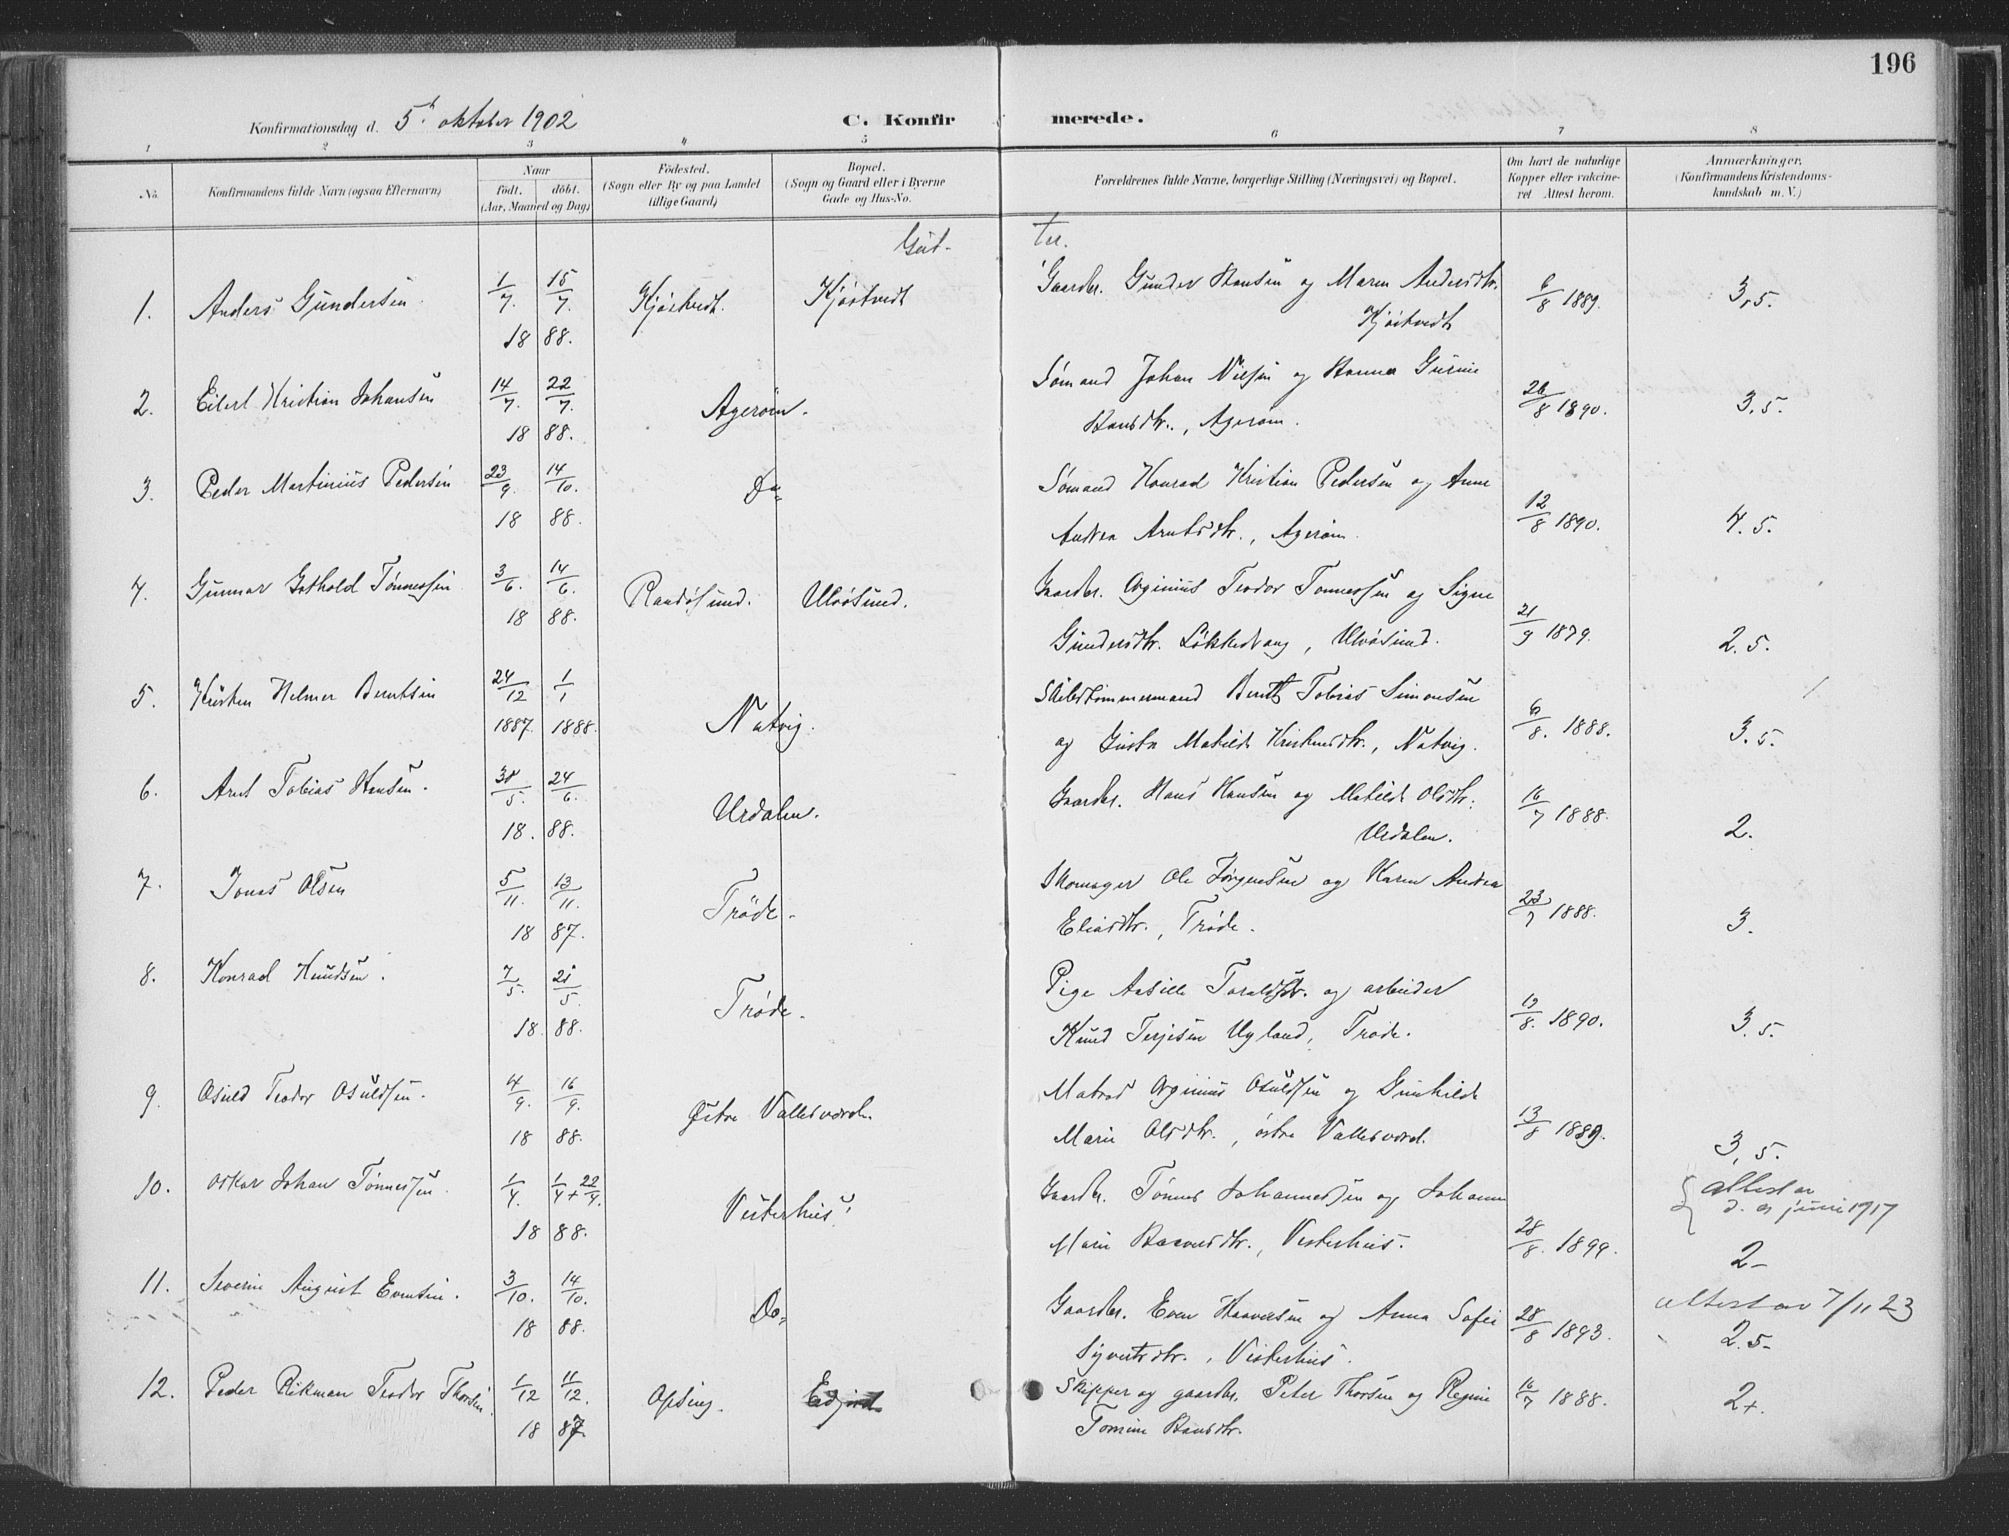 196
Konfirmationsdag d. 5t oktober 1902 C. Konfirmerede.
1 2 3 4 5 6 7 8
No. Konfirmandens fulde Navn (ogsaa Efternavn) Naar født. døbt. (Aar, Maaned og Dag) Fødested. (Sogn eller By og paa Landet tillige Gaard) Bopæl. (Sogn og Gaard eller i Byerne Gade og Hus-No. Forældrenes fulde Navne, borgerlige Stilling (Næringsvei) og Bopæl. Om havt de naturlige Kopper eller vakcineret Attest herom. Anmærkninger. (Konfirmandens Kristendomskundskab m. V.)
Gut- ter.
1. Anders Gundersen. 1/7. 15/7. Kjøstvedt. Kjøstvedt Gaardbr. Gunder Hansen og Maren Andersdtr. 6/8 1889. 3,5.
18 88. Kjøstvedt
2. Eilert Kristian Johansen 14/7. 22/7. Agerøen. Sømand Johan Nilsen og Hanna Gurine 26/8 1890. 3.5.
18 88. Hansdtr., Agerøen.
3. Peder Martinius Pedersen 23/9. 14/10. Do Sømand Konrad Kristian Pedersen og Anne 12/8 1890. 4.5.
18 88. Andrea Arntsdtr., Agerøen.
4. Gunnar Gothold Tønnessen 3/6. 14/6. Randøsund. Ulvøsund. Gaardbr. Orginius Teodor Tønnessen og Signe 21/9 1879.
18 88. Gundersdtr. Løkkedvang, Ulvøsund. 2.5.
5. Kristen Helmer Berntsen 24/12 1/1 Natvig. Skibstømmermand Bernt Tobias Simonsen 6/8. 1888. 3.5.
1887. 1888. og Gusta Matilde Kristensdtr., Natvig.
6. Arnt Tobias Hansen. 30/5. 24/6. Urdalen. Gaardbr. Hans Hansen og Matilde Olsdtr. 16/7 1888. 2.
18. 88. Urdalen.
7. Jonas Olsen 5/11. 13/11. Trøde. Skomager Ole Jørgensen og Karen Andrea 23/7 1888. 3.
18 87. Eliasdtr., Trøde.
8. Konrad Knudsen. 7/5. 21/5. Trøde. Pige Aasille Toraldsdtr. og arbeider 19/8. 1890. 3.5.
18. 88. Knud Terjesen Ugland, Trøde.
9. Osuld Teodor Osuldsen. 4/9. 16/9. Østre Vallesværd. Matros Orginius Osuldsen og Gunhilde 13/8 1889.
18 88. Marie Olsdtr., østre Vallesværd. 3,5.
10. Oskar Johan Tønnessen. 1/4. 1/4 + 22/4. Vesterhus. Gaardbr. Tønnes Johannessen og Johanne 28/8. 1899. attest av
d. 9 juni 1917
18 88. Marie Haaversdtr., Vesterhus. 2-
11. Severin August Evensen. 3/10. 14/10. Do. Gaardbr. Even Haaversen og Anna Sofie 28/8 1893. attest av 7/11 23
18 88. Syvertsdtr., Vesterhus. 2.5-
12. Peder Rikman Teodor Thorsen 1/12 11/12. Ofsing. Skipper og gaardbr. Peter Thorsen og Regine 16/7 1888. 2+.
18 87. Tomine Hansdtr.